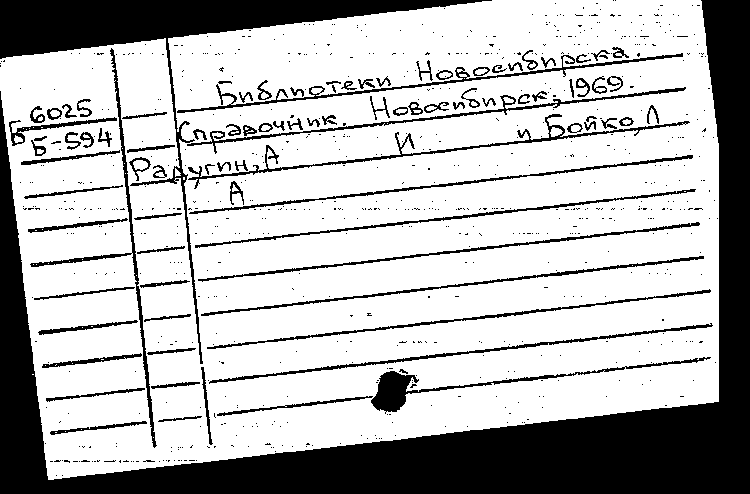 Библиотеки Новосибирска.
Б 6025
Справочник. Новосибирск, 1969.
Б-594
Радугин, А И и Бойко, Л
А